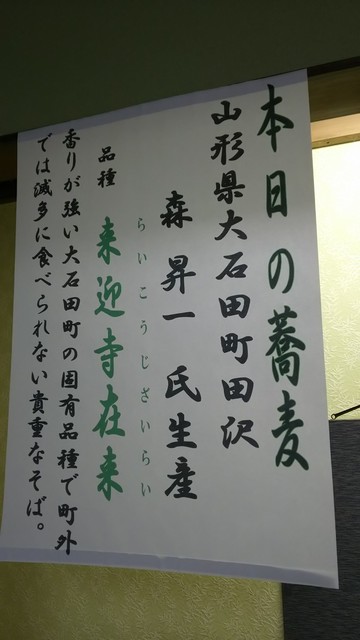 本日の蕎麦
山形県大石田町田沢
森 昇一 氏生産
らいこうじざいらい
品種 来迎寺在来
香りが強い大石田町の固有品種で町外
では滅多に食べられない貴重なそば。